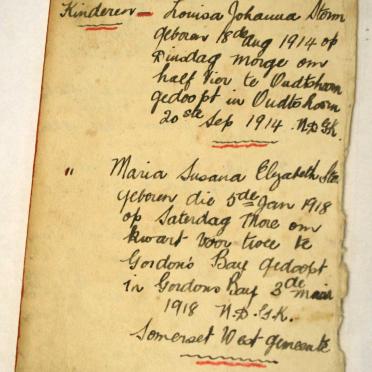 Kinderen — Louisa Johanna Storm
geboren 18de Aug 1914 op
Dinsdag morge om
half vier te Oudtshoorn
gedoopt in Oudtshoorn
20ste Sep 1914. N.D.G.K.
" Maria Susana Elyzabeth
geboren die 5de Jan 1918
op Saterdag More om
kwart voor twee te
Gordon's Bay gedoopt
in Gordons Bay 3de
1918 N.D.G.K.
Somerset West gemeente